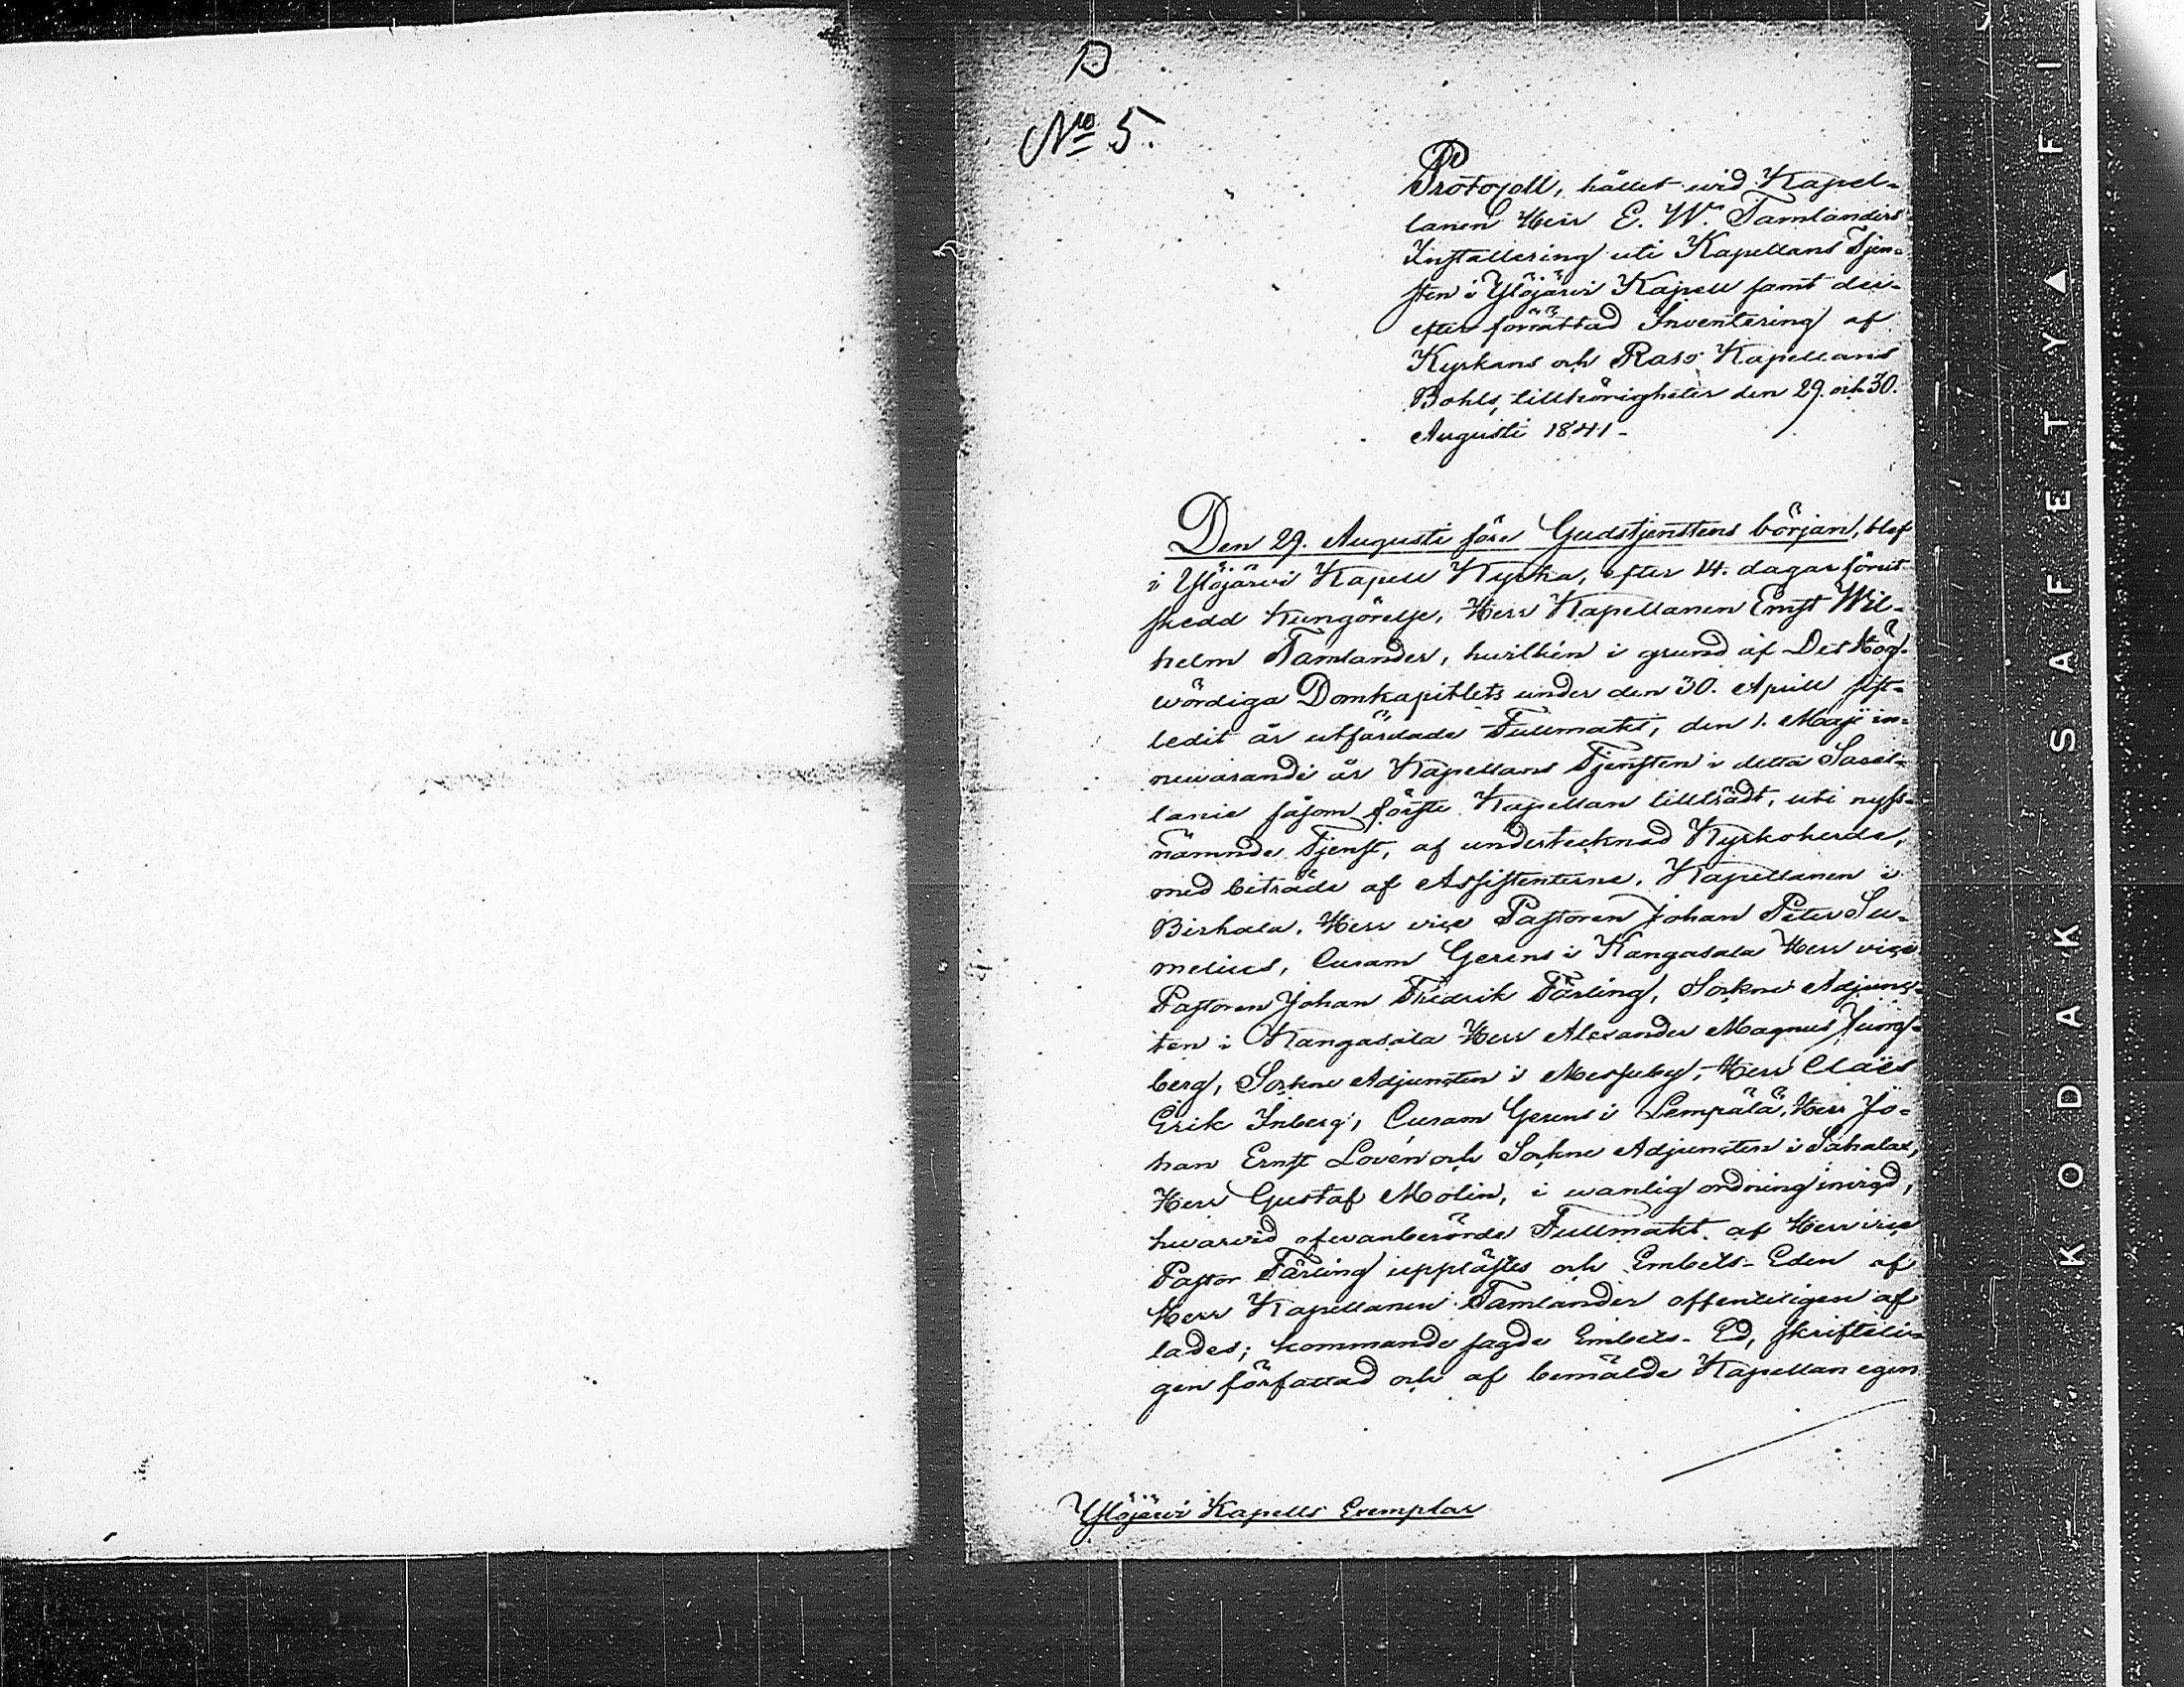 D
No 5.
Protocoll, hållet wid Kapel-
lanen Herr E. W. Tamlanders
Installering uti Kapellans Tjen-
sten i Ylöjärvi Kapell samt der-
efter förrättad Inventering af
Kyrkans och Raso Kapellans
Bohls tillhörigheter den 29. och 30.
Augusti 1841-
Den 29. Augusti före Gudstjenstens början, blef
i Ylöjärvi Kapell Kyrka, efter 14. dagar förut
skedd Kungörelse, Herr Kapellanen Ernst Wil-
helm Tamlander, hwilken i grund af Det Hög-
wördiga Domkapitlets under den 30. April sist-
ledit år utfärdade Fullmakt, den 1. Maji in-
newarande år Kapellans Tjensten i detta Sacel-
lanie såsom förste Kapellan tillträdt, uti nyss-
nämnde Tjenst, af undertecknad Kyrkoherde,
med biträde af Assistenterne, Kapellanen i
Birkala, Herr vice Pastoren Johan Peter Su-
melius, Curam Gerens i Kangasala Herr vice
Pastoren Johan Fredrik Färling, Sockne Adjunc-
ten i Kangasala Herr Alexander Magnus Ljung-
berg, Sockne Adjuncten i Messuby, Herr Claës
Erik Inberg, Curam Gerens i Lempälä, Herr Jo-
han Ernst Lovén och Sockne Adjuncten i Sahalax,
Herr Gustaf Molin, i wanlig ordning invigd,
hwarvid ofwanberörde Fullmakt af Herr vice
Pastor Färling upplästes och Embets-Eden af
Herr Kapellanen Tamlander offenteligen af
lades; kommande sagde Embets-Ed, skrifteli-
gen författad och af bemälde Kapellan egen
Ylöjärvi Kapells Exemplar
KODAK SAFETY ▲ FI